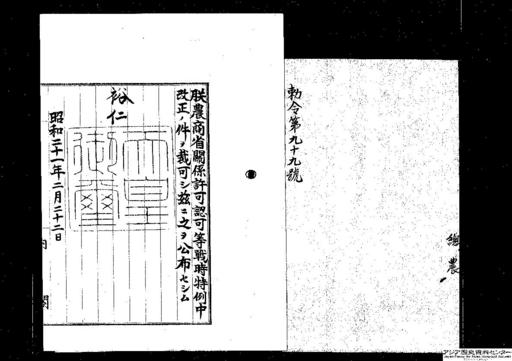 勅令第九十九號
農
朕農商省關係許可認可等戰時特例中
改正ノ件ヲ裁可シ茲ニ之ヲ公布セシム
裕仁
天皇
御璽
昭和二十一年二月二十二日
内閣
アジア歴史資料センター